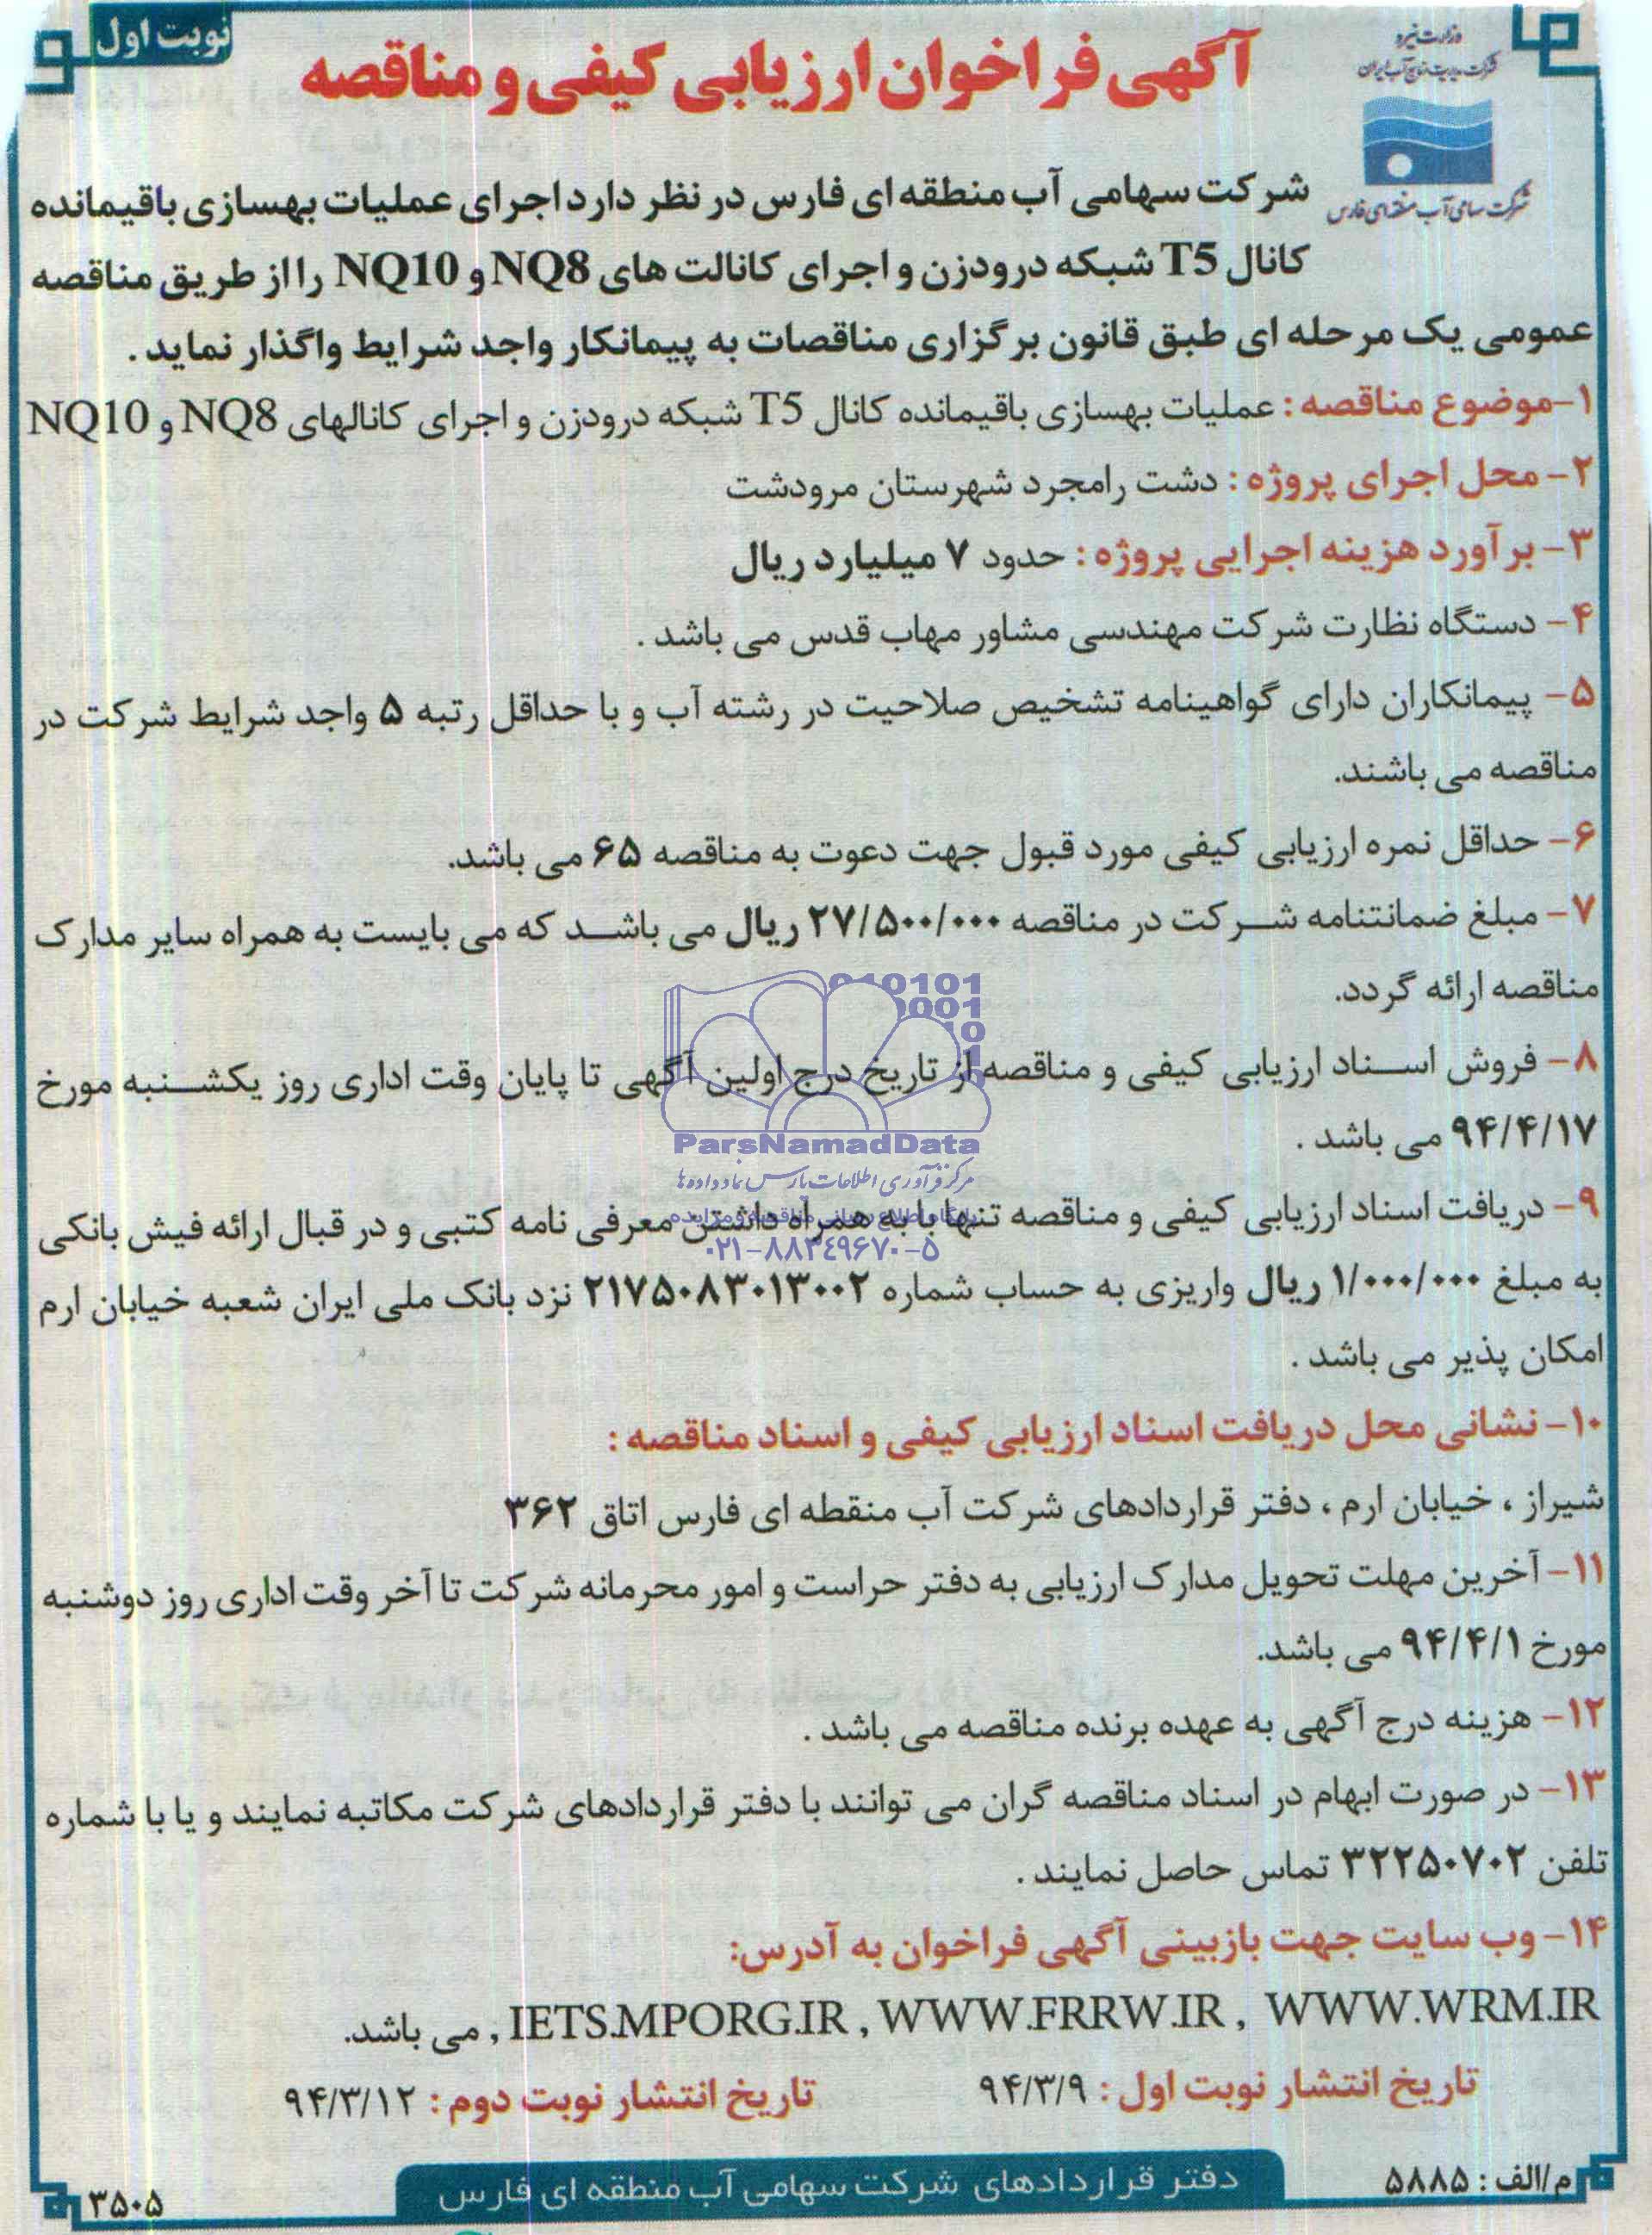 نوبت اول
وزارت نیرو
شرکت مدیریت منابع آب ایران
شرکت سهامی آب منطقه‌ای فارس
آگهی فراخوان ارزیابی کیفی و مناقصه
شرکت سهامی آب منطقه ای فارس در نظر دارد اجرای عملیات بهسازی باقیمانده
کانال T5 شبکه درودزن و اجرای کانالت های NQ8 و NQ10 را از طریق مناقصه
عمومی یک مرحله ای طبق قانون برگزاری مناقصات به پیمانکار واجد شرایط واگذار نماید .
۱-موضوع مناقصه : عملیات بهسازی باقیمانده کانال T5 شبکه درودزن و اجرای کانالهای NQ8 و NQ10
۲- محل اجرای پروژه : دشت رامجرد شهرستان مرودشت
۳- برآورد هزینه اجرایی پروژه : حدود ۷ میلیارد ریال
۴- دستگاه نظارت شرکت مهندسی مشاور مهاب قدس می باشد .
۵- پیمانکاران دارای گواهینامه تشخیص صلاحیت در رشته آب و با حداقل رتبه ۵ واجد شرایط شرکت در
مناقصه می باشند.
۶- حداقل نمره ارزیابی کیفی مورد قبول جهت دعوت به مناقصه ۶۵ می باشد.
۷- مبلغ ضمانتنامه شرکت در مناقصه ۲۷/۵۰۰/۰۰۰ ریال می باشد که می بایست به همراه سایر مدارک
مناقصه ارائه گردد.
۸- فروش اسناد ارزیابی کیفی و مناقصه از تاریخ درج اولین آگهی تا پایان وقت اداری روز یکشنبه مورخ
۹۴/۴/۱۷ می باشد .
ParsNamadData
مرکز فرآوری اطلاعات پارس نماد داده ها
۹- دریافت اسناد ارزیابی کیفی و مناقصه تنها با به همراه داشتن معرفی نامه کتبی و در قبال ارائه فیش بانکی
۰۲۱-۸۸۳۴۹۶۷۰-۵
به مبلغ ۱/۰۰۰/۰۰۰ ریال واریزی به حساب شماره ۲۱۷۵۰۸۳۰۱۳۰۰۲ نزد بانک ملی ایران شعبه خیابان ارم
امکان پذیر می باشد .
۱۰- نشانی محل دریافت اسناد ارزیابی کیفی و اسناد مناقصه :
شیراز ، خیابان ارم ، دفتر قراردادهای شرکت آب منقطه ای فارس اتاق ۳۶۲
۱۱- آخرین مهلت تحویل مدارک ارزیابی به دفتر حراست و امور محرمانه شرکت تا آخر وقت اداری روز دوشنبه
مورخ ۹۴/۴/۱ می باشد.
۱۲- هزینه درج آگهی به عهده برنده مناقصه می باشد .
۱۳- در صورت ابهام در اسناد مناقصه گران می توانند با دفتر قراردادهای شرکت مکاتبه نمایند و یا با شماره
تلفن ۳۲۲۵۰۷۰۲ تماس حاصل نمایند .
۱۴- وب سایت جهت بازبینی آگهی فراخوان به آدرس:
IETS.MPORG.IR , WWW.FRRW.IR , WWW.WRM.IR , می باشد.
تاریخ انتشار نوبت اول : ۹۴/۳/۹ تاریخ انتشار نوبت دوم : ۹۴/۳/۱۲
م/الف : ۵۸۸۵
دفتر قراردادهای شرکت سهامی آب منطقه ای فارس
۳۵۰۵